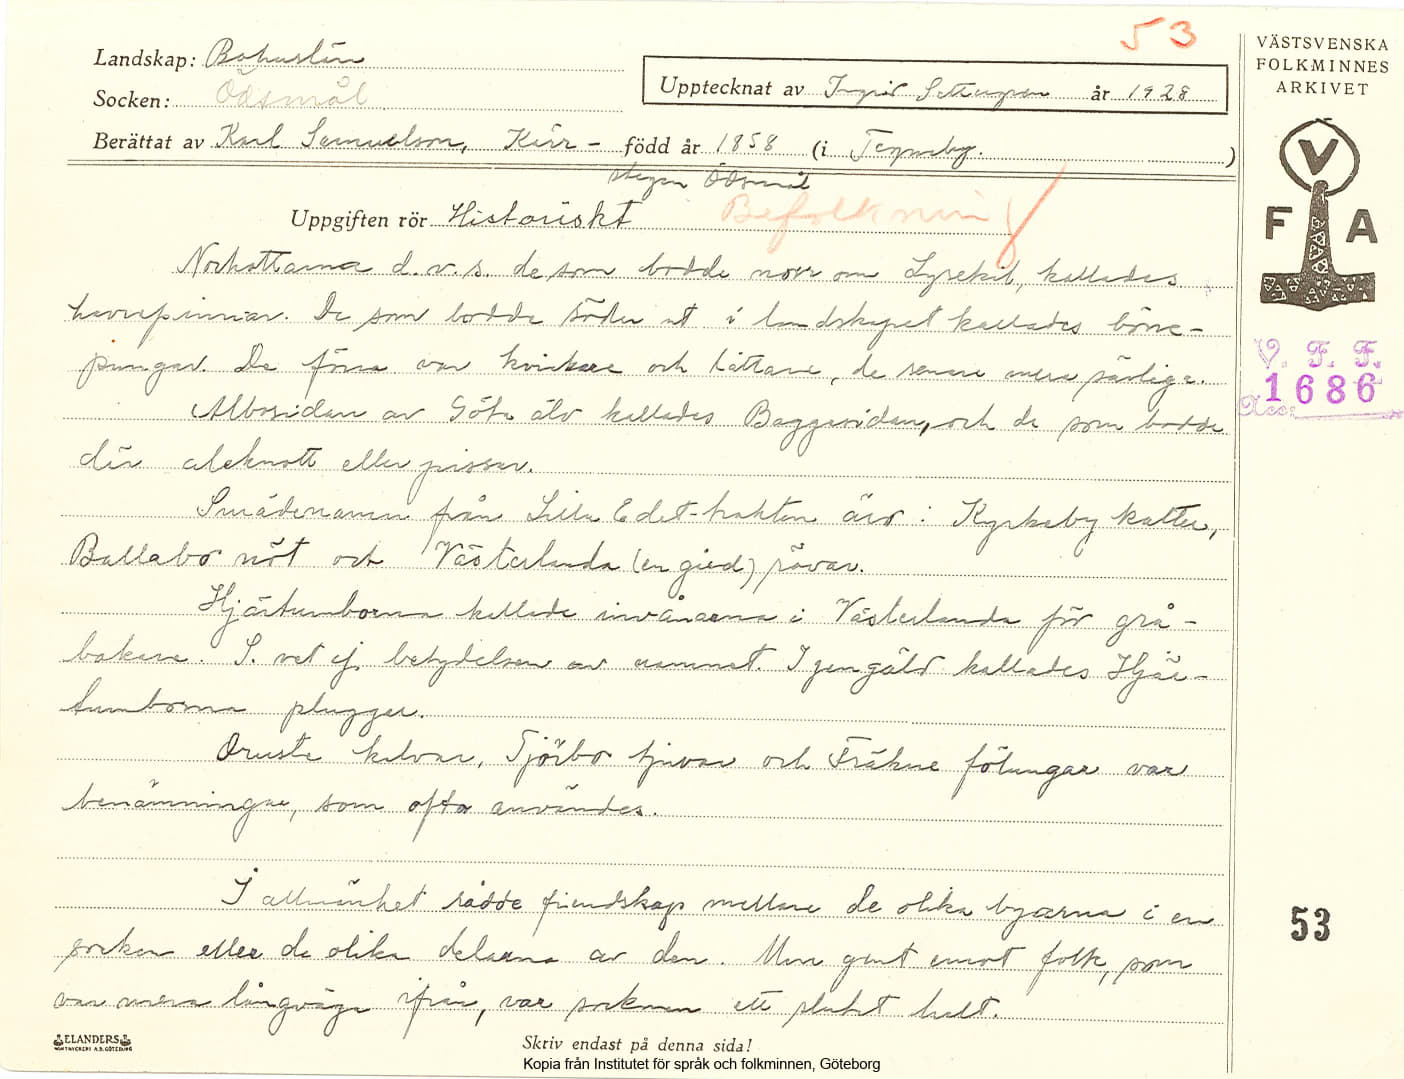 53
VÄSTSVENSKA
FOLKMINNES
ARKIVET
Landskap: Bohuslän
Socken: Ödsmål
Upptecknat av Ingrid år 1928
Berättat av Karl Samuelson, Kärr-
stegen Ödsmål
född år 1858 (i )
Uppgiften rör Historiskt
Befolkning
V
F A
Norkottarna d.v.s. de som bodde norr om Lysekil, kallades
havrepinnar. De som bodde söder ut i landskapet kallades böne-
pungar. De förra var kvickare och lättare, de senare mera såvliga.
Albosidan av Göta älv kallades Baggesidan, och de som bodde
där aleknott eller pissar.
Smädenamn från Lilla Edet-trakten äro: Kyrkeby katter,
Ballabo nöt och Västerlanda (en gård) rävar.
Hjärtumborna kallade invånarna i Västerlanda för grå-
bakare. S. vet ej betydelsen av namnet. I gengäld kallades Hjär-
tumborna pluggar.
Oruste kalvar, Tjörbo tjuvar och Fräkne fölungar var
benämningar, som ofta användes.
I allmänhet rådde fiendskap mellan de olika byarna i en
socken eller de olika delarna av den. Men gent emot folk, som
var mera långväga ifrån, var socknen ett slutet helt.
V. F. F.
Acc: 1686
53
ELANDERS
BOKTRYCKERI A.B. GÖTEBORG
Skriv endast på denna sida!
Kopia från Institutet för språk och folkminnen, Göteborg